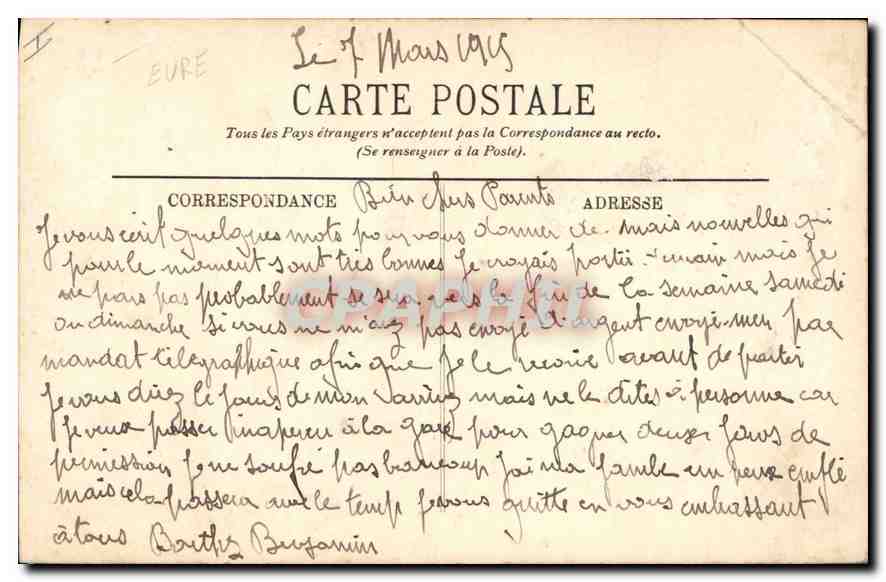 I
EURE
Le 7 Mars 1915
CARTE POSTALE
Tous les Pays étrangers n'acceptent pas la Correspondance au recto.
(Se renseigner à la Poste).
CORRESPONDANCE Bien chers Parents ADRESSE
Je vous écrit quelques mots pour vous donner de mais nouvelles qui
pour le moment sont très bonnes Je croyais partir demain mais Je
ne pars pas probablement se sera vers la fin de la semaine samedi
ou dimanche si vous ne m'avez pas envoyé d'argent envoyé-men par
mandat télégraphique afin que Je le recoive avant de partir
Je vous direz le Jours de mon sarrivez mais ne le dites à personne car
Je veux passer inaperçu à la gare pour gagner deux Jours de
permission Je ne soufre pas beaucoup J'ai ma Jambe un peux emflé
mais cela passera avec le temp Je vous quitte en vous embrassant
à tous Benjamin
CPAPHIL